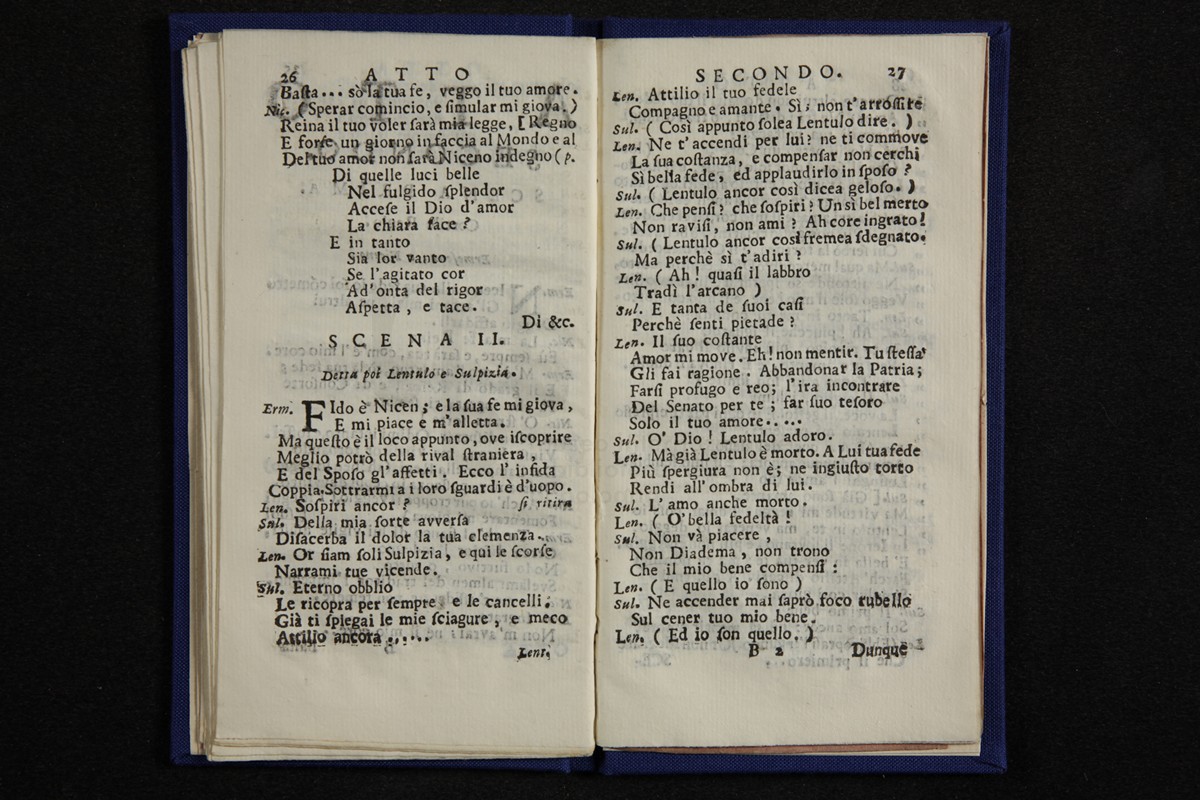 26 ATTO
Baſta... sò la tua fe, veggo il tuo amore.
Nic. (Sperar comincio, e ſimular mi giova.)
Reina il tuo voler ſarà mia legge, [Regno
E forſe un giorno in faccia al Mondo e al
Del tuo amor non ſarà Niceno indegno (p.
Di quelle luci belle
Nel fulgido ſplendor
Acceſe il Dio d'amor
La chiara face?
E in tanto
Sia lor vanto
Se l'agitato cor
Ad'onta del rigor
Aſpetta, e tace.
Di &c.
SCENA II.
Detta poi Lentulo e Sulpizia.
Erm. FIdo è Nicen; e la ſua fe mi giova,
E mi piace e m'alletta.
Ma queſto è il loco appunto, ove iſcoprire
Meglio potrò della rival ſtraniera,
E del Spoſo gl'affetti. Ecco l'infida
Coppia. Sottrarmi a i loro ſguardi è d'uopo.
Len. Soſpiri ancor? ſi ritira
Sul. Della mia ſorte avverſa
Diſacerba il dolor la tua clemenza.
Len. Or ſiam ſoli Sulpizia, e qui le ſcorſe
Narrami tue vicende.
Sul. Eterno obblio
Le ricopra per ſempre e le cancelli;
Già ti ſpiegai le mie ſciagure, e meco
Attilio ancora ......
Lent.
SECONDO. 27
Len. Attilio il tuo fedele
Compagno e amante. Sì; non t'arroſſire
Sul. (Così appunto ſolea Lentulo dire.)
Len. Ne t'accendi per lui? ne ti commove
La ſua coſtanza, e compenſar non cerchi
Sì bella fede, ed applaudirlo in ſpoſo?
Sul. (Lentulo ancor così dicea geloſo.)
Len. Che penſi? che ſoſpiri? Un sì bel merto
Non raviſi, non ami? Ah core ingrato!
Sul. (Lentulo ancor così fremea ſdegnato.
Ma perchè sì t'adiri?
Len. (Ah! quaſi il labbro
Tradì l'arcano)
Sul. E tanta de ſuoi caſi
Perchè ſenti pietade?
Len. Il ſuo coſtante
Amor mi move. Eh! non mentir. Tu ſteſſa
Gli fai ragione. Abbandonar la Patria;
Farſi profugo e reo; l'ira incontrare
Del Senato per te; far ſuo teſoro
Solo il tuo amore.....
Sul. O' Dio! Lentulo adoro.
Len. Mà già Lentulo è morto. A Lui tua fede
Più ſpergiura non è; ne ingiuſto torto
Rendi all'ombra di lui.
Sul. L'amo anche morto.
Len. (O' bella fedeltà!
Sul. Non và piacere,
Non Diadema, non trono
Che il mio bene compenſi:
Len. (E quello io ſono)
Sul. Ne accender mai ſaprò foco rubello
Sul cener tuo mio bene.
Len. (Ed io ſon quello.)
B 2 Dunque